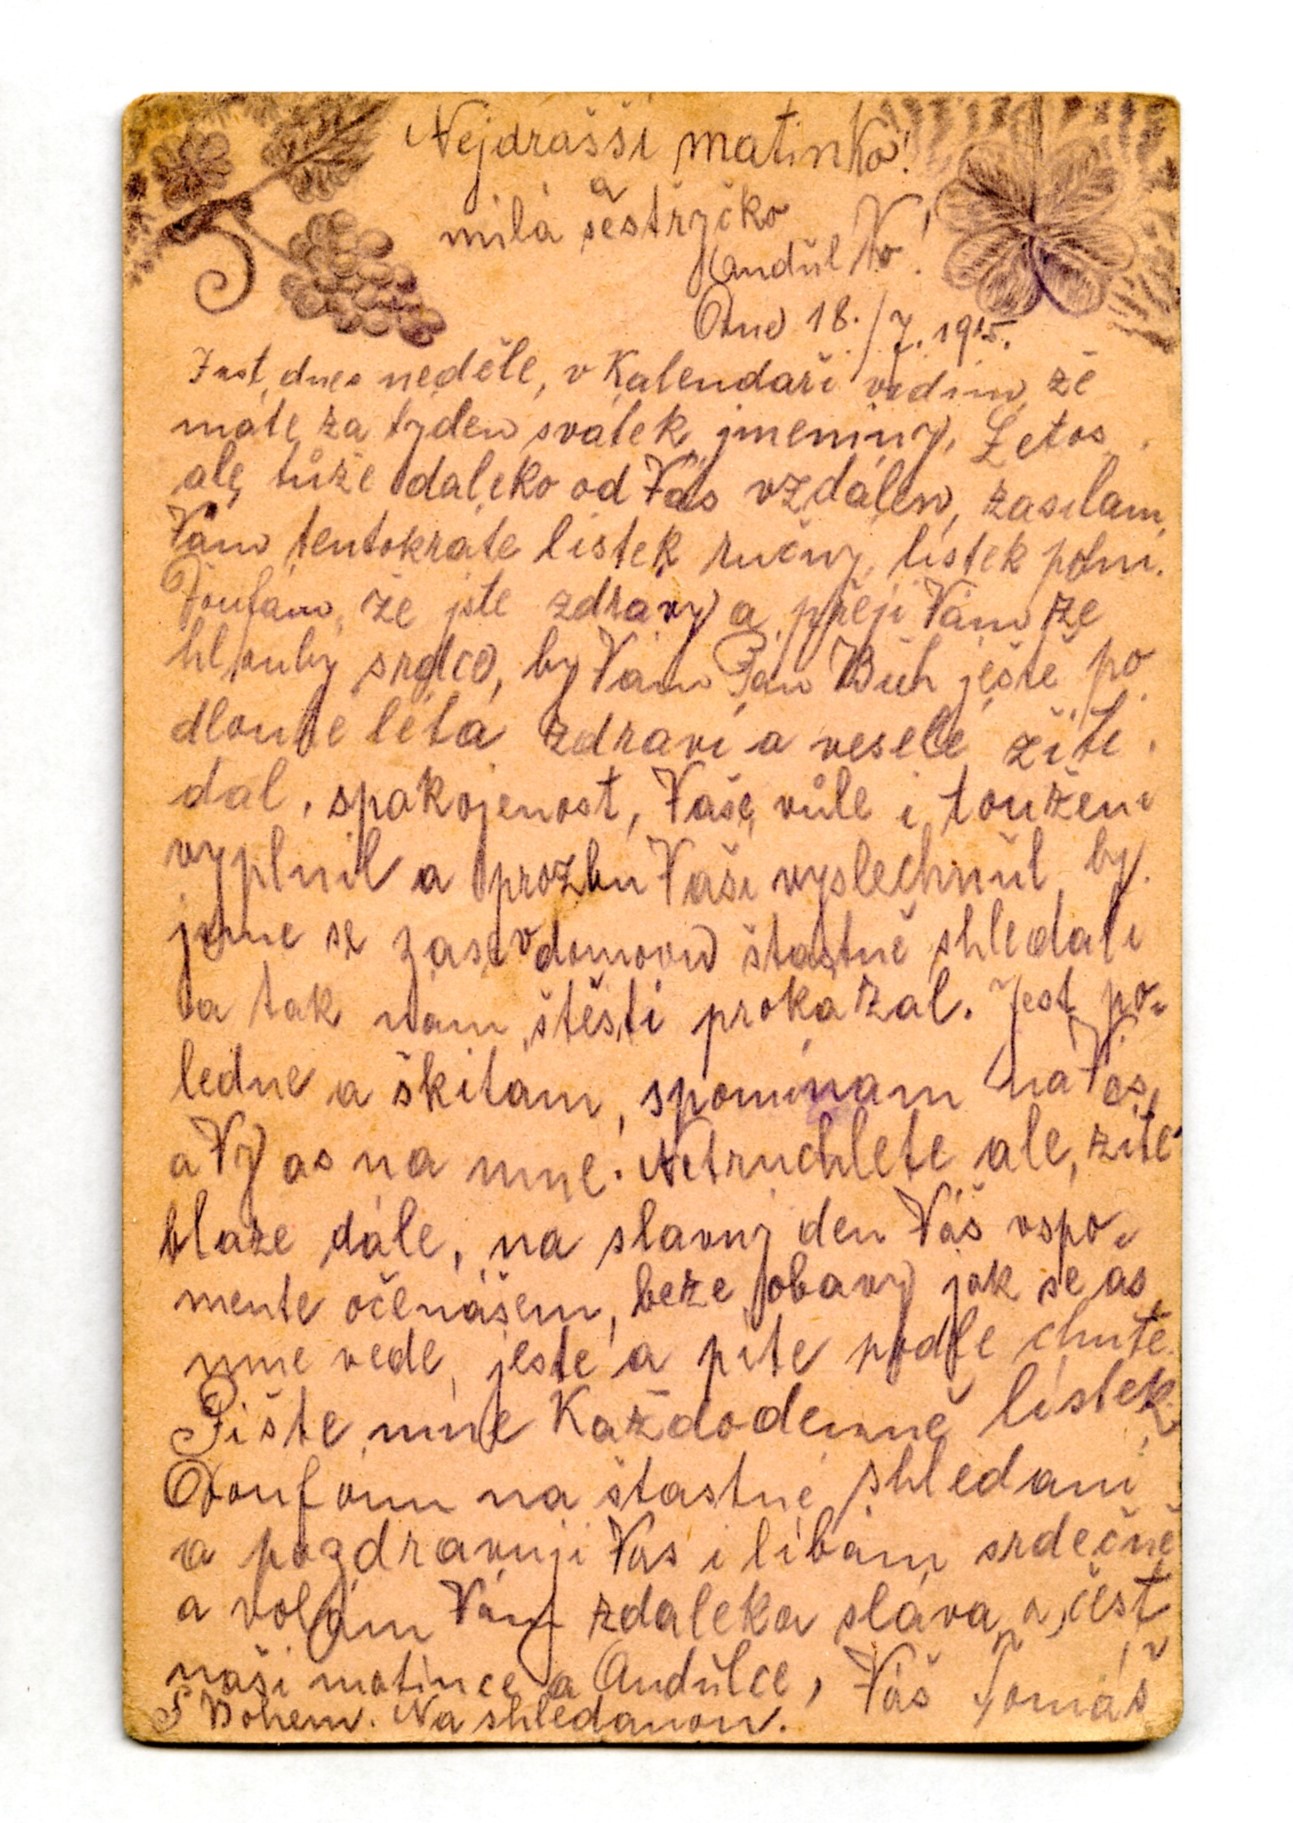 Nejdrašší matinko!
a
milá šestřyčko
Andůl Ko!
Dne 18./7. 1915.
Jest dnes neděle, v Kalendaři vidim, že
máte za tyden svátek jmeniny. Letos
ale tůže daleko od Vás vzdálen, zasilam
Vám tentokráte listek ručny, listek polni.
Doufám, že jste zdrávy a přeji Vám ze
hlouby srdce, by Vám Pán Bůh ješte po
dlouhe léta zdravi a vesele žiti
dal, spokojenost, Vaše vůle i touženi
vyplnil a prozbu Vaši vyslechnul by
jsme se zase v domovu štastně shledali
a tak nam štěsti prokázal. Jest po-
ledne a škitám, spominam na Vás,
a Vy as na mne. Netruchlete ale, žite
blaze dále, na slavny den Váš vspo-
mente očenášem, beze obavy jak se as
mne vede, jeste a pite podle chute.
Pište mne Každodenně listek
Doufám na štastné shledani
a pozdravuji Vás i libám srdečně
a volám Vám zdaleka sláva a čest
naši matince a Andůlce, Váš Tomáš
S Bohem. Na shledanou.